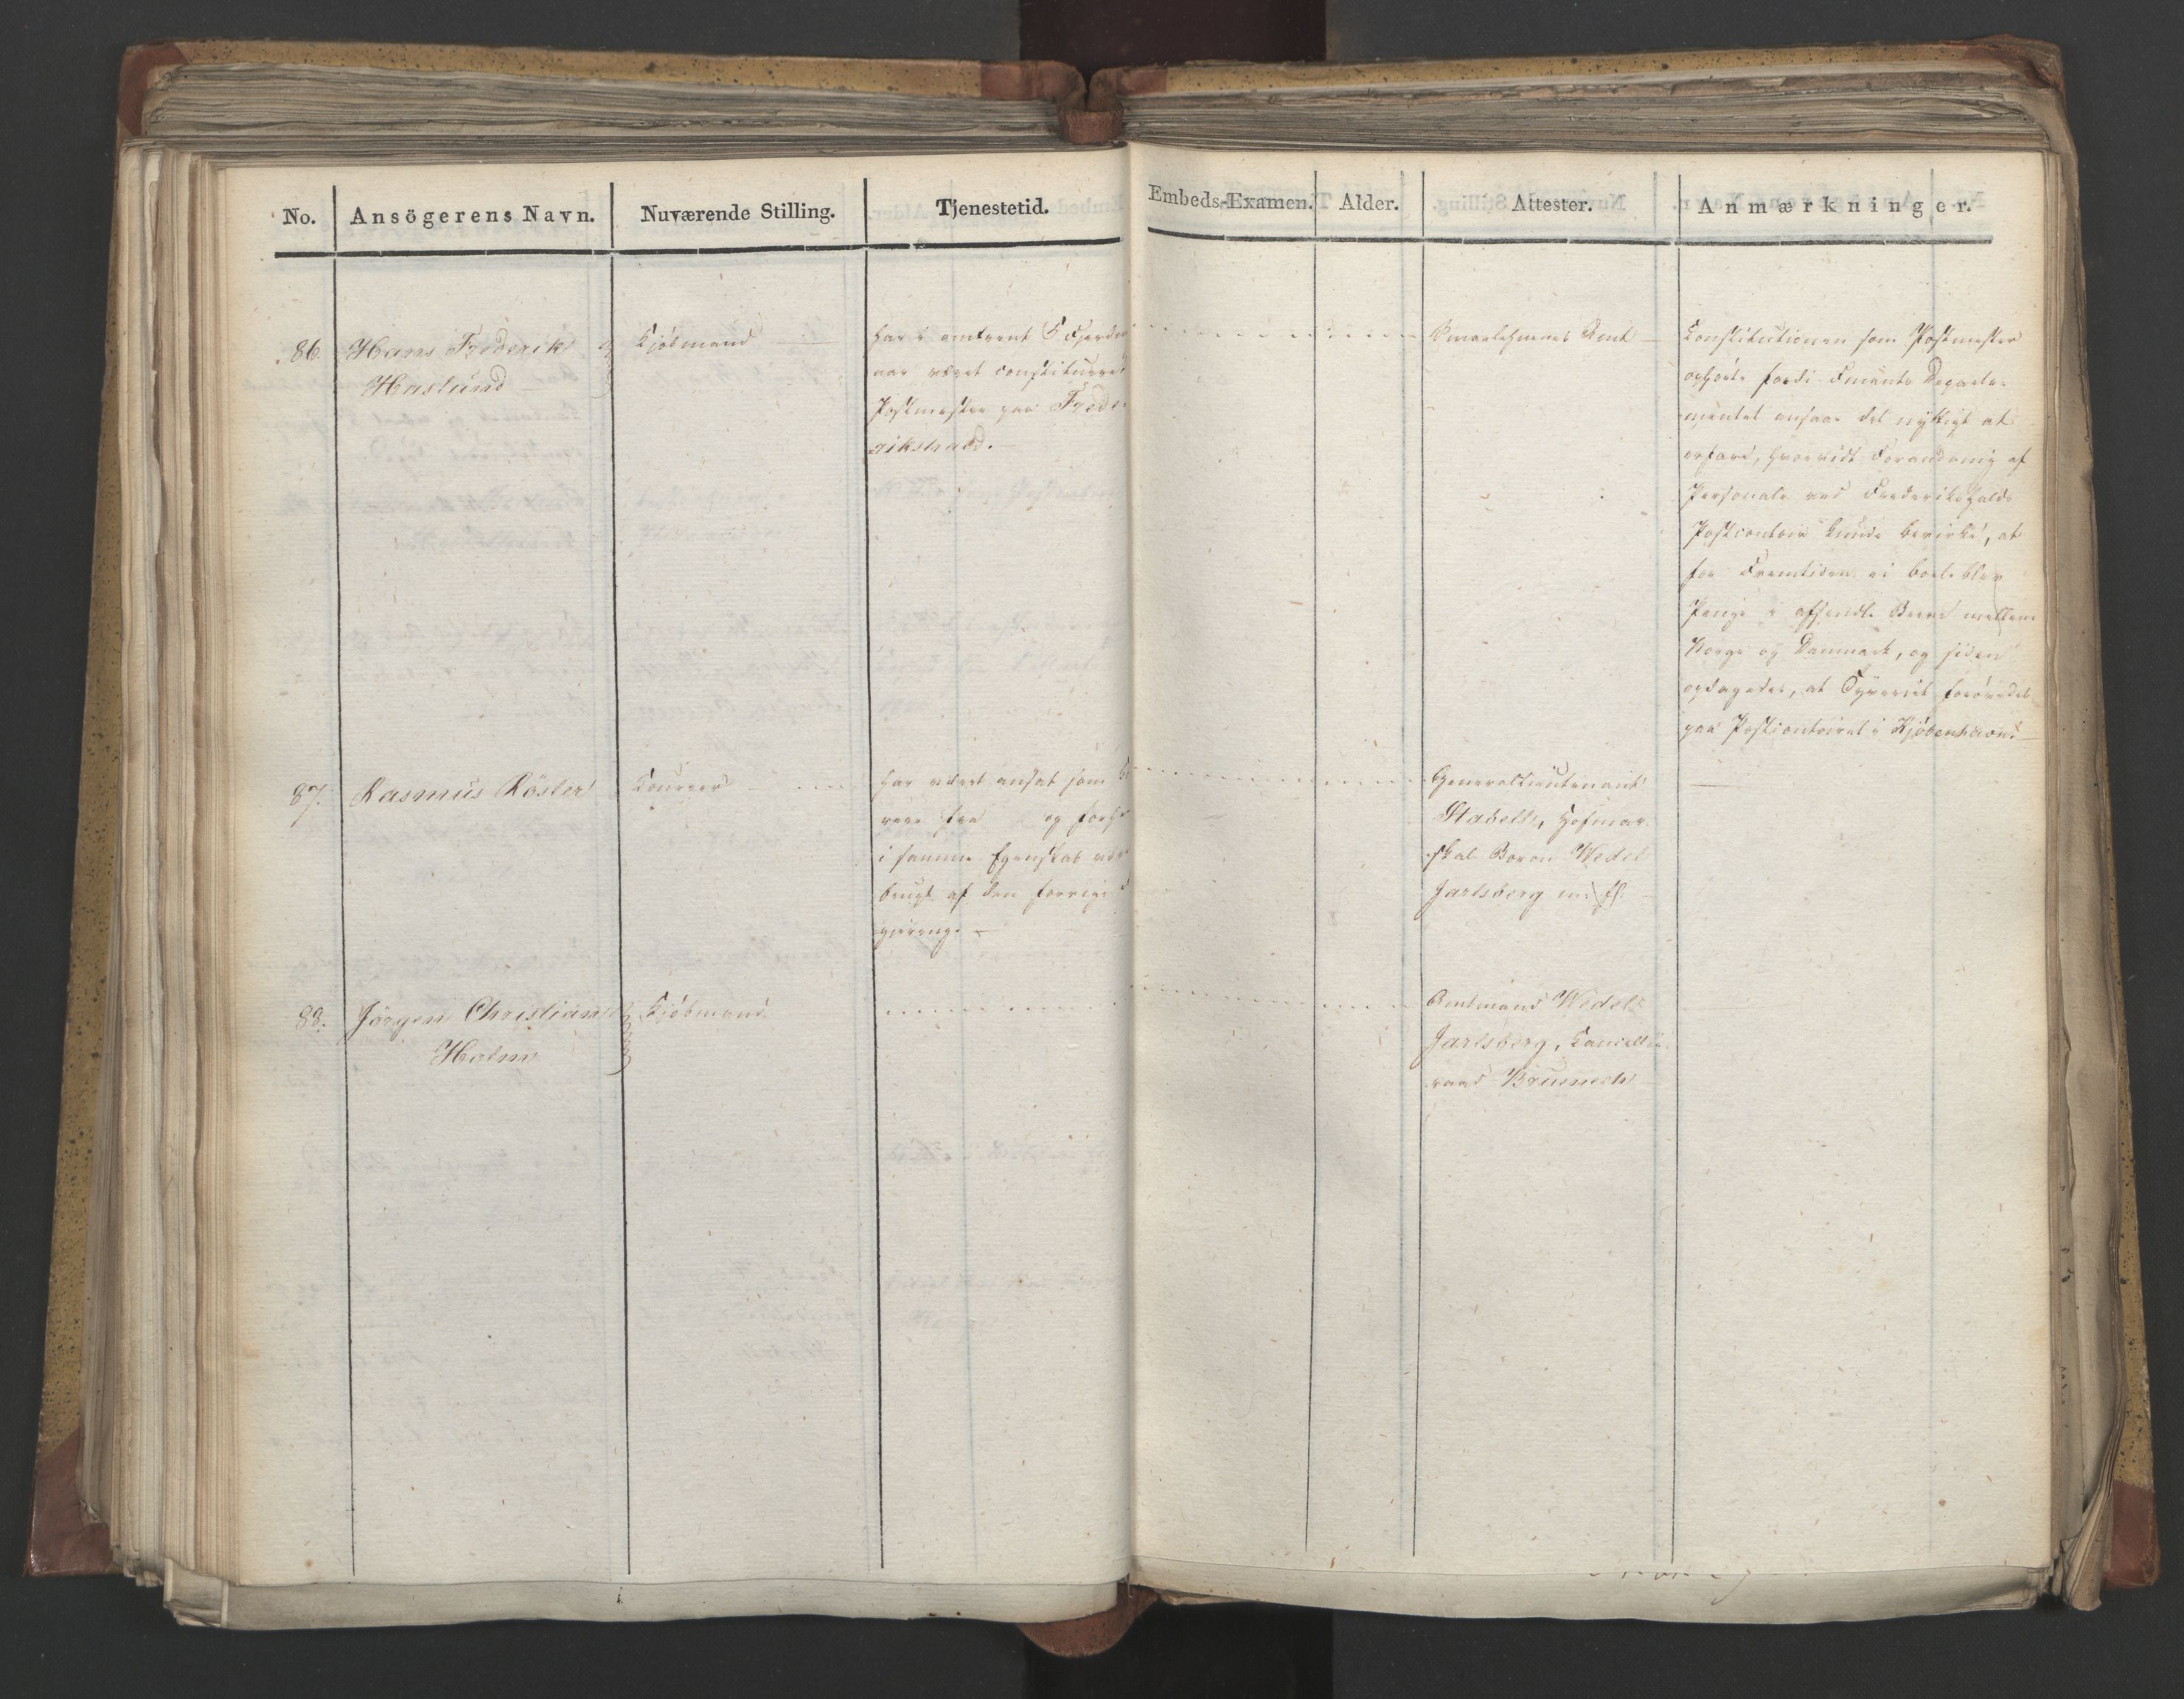 No.
Ansögerens Navn.
Nuværende Stilling.
Tjenestetid.
Embeds-Examen.
Alder.
Attester.
Anmærkninger.
86.
Hans Frederik
Haslund
Kjöbmand
har i omtrent 5 Fjerdin
aar været constitueret
Postmester paa Frede-
rikshald.
Smaalehnenes Amt
Constitutionen som Postmester
ophörte fordi Departe-
mentet ansaae det nyttigt at
erfare, hvorvidt Forandring af
Personale ved Frederikshalds
Postcontoir kunde bevirke, at
for Fremtiden ei bortblev
Penge i afsendte Breve mellem
Norge og Danmark, og siden
opdagedes, at Tyveriet forövedes
paa Postcontoiret i Kjöbenhavn.
87.
Rasmus Röster
Coureer
har været ansat som
reer fra og forhe
i samme Egenskab
brugt af den forrige
gjering.
Generallieutenant
Stabell, Hofmar-
skal Baron Wedel
Jarlsberg m: fl.
88.
Jörgen Christian
Holm
Kjöbmand
Amtmand Wedel
Jarlsberg, Cancellie
raad Bruenech